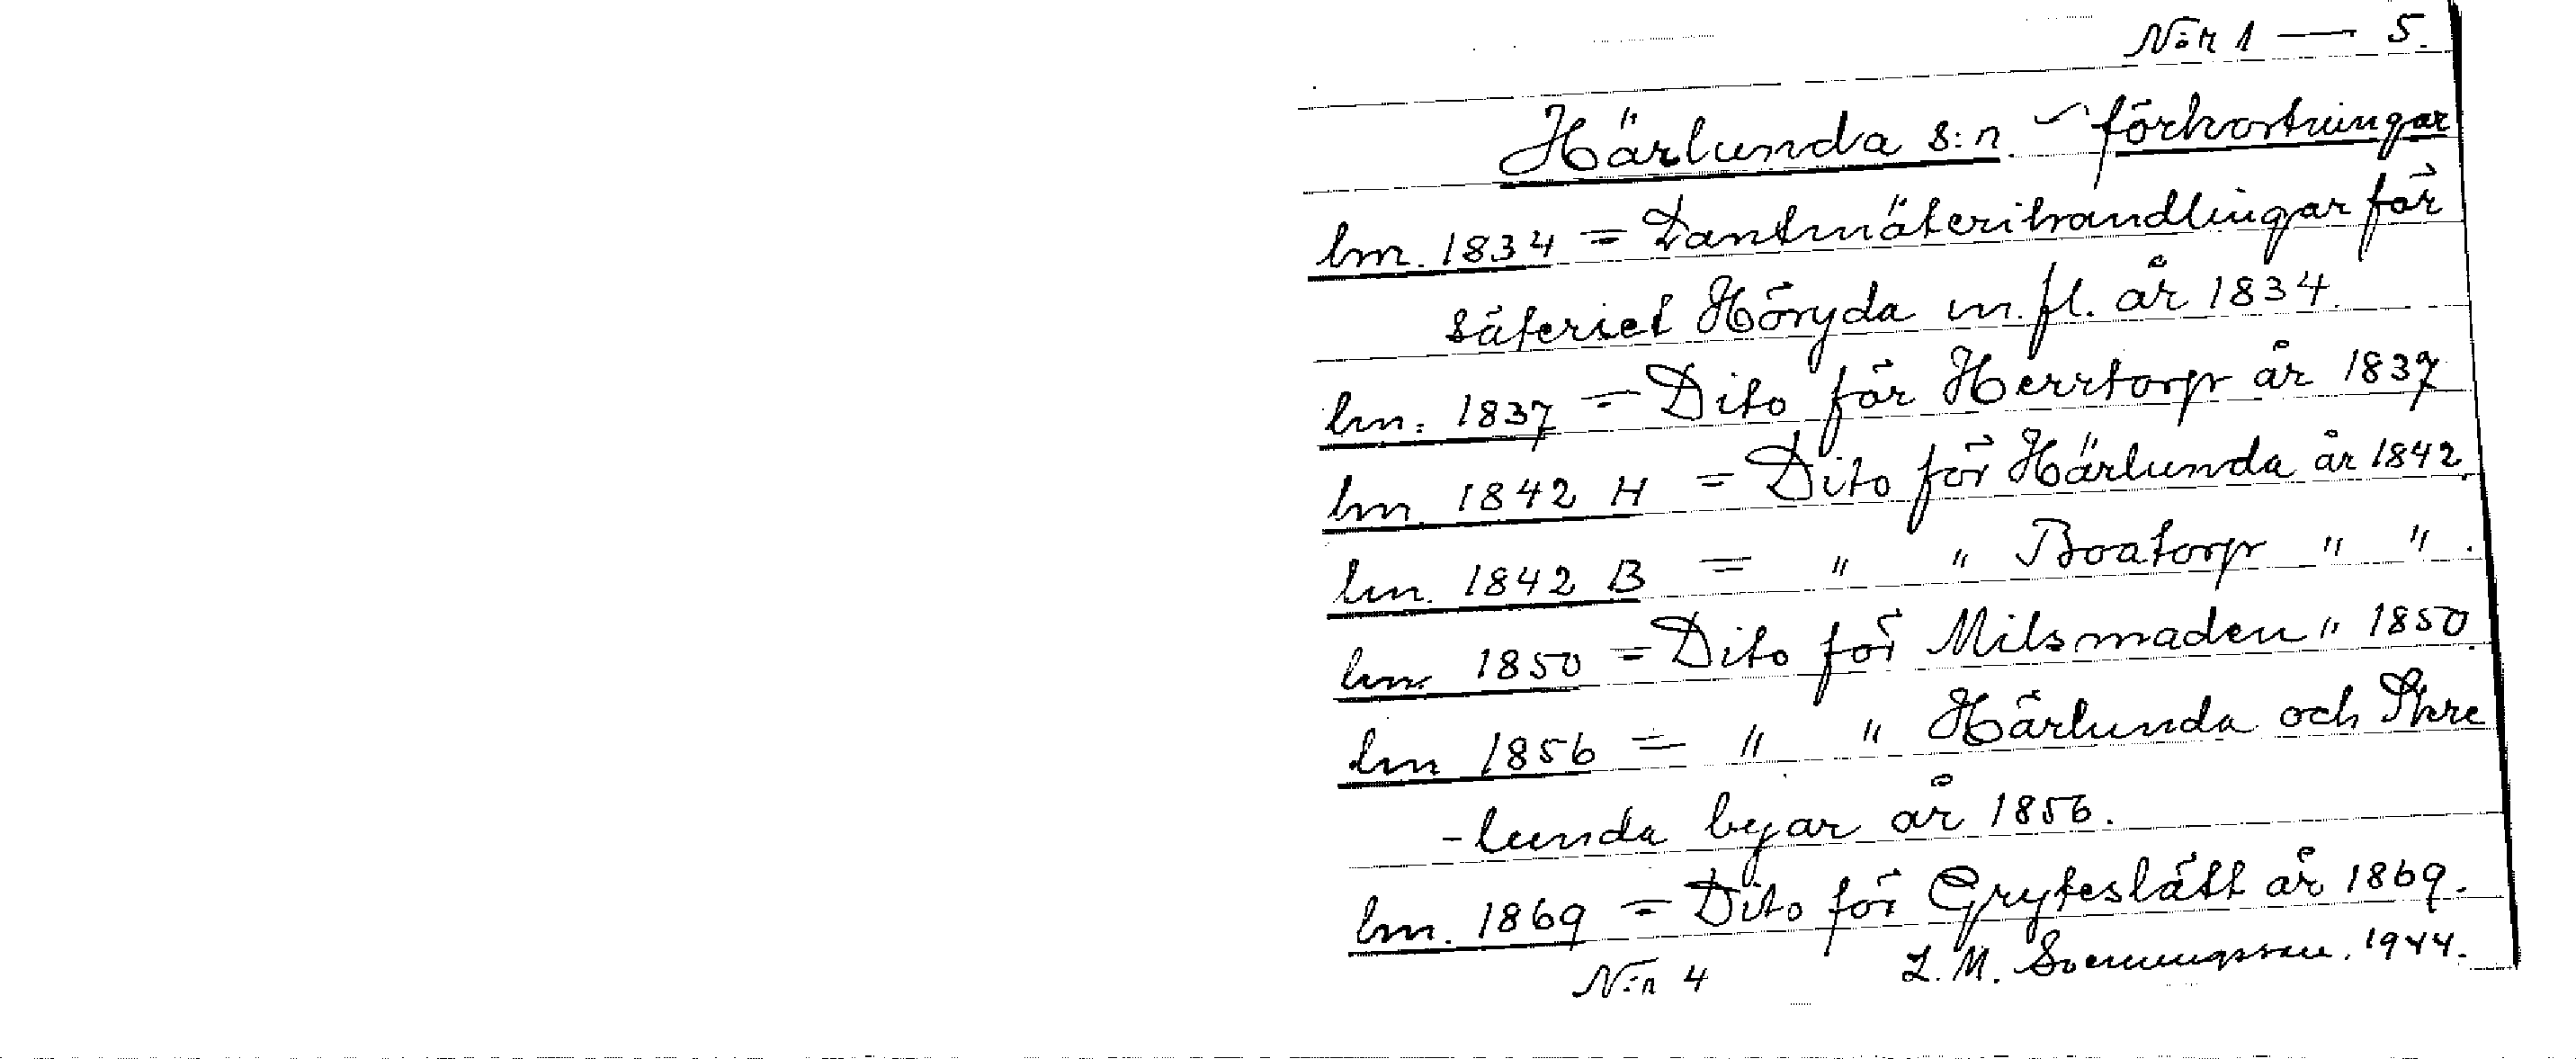 N:r 1 — 5.
Härlunda s:n. förkortningar
lm. 1834 = Lantmäterihandlingar för
säteriet Höryda m. fl. år 1834.
lm. 1837 = Dito för Herrtorp år 1837
lm. 1842 H = Dito för Härlunda år 1842.
lm. 1842 B = " " Boatorp " ".
lm. 1850 = Dito för Milsmaden " 1850.
lm 1856 = " " Härlunda och Skre
-lunda byar år 1856.
lm. 1869 = Dito för Gryteslätt år 1869.
N:r 4 L. M. Svenungsson. 1944.